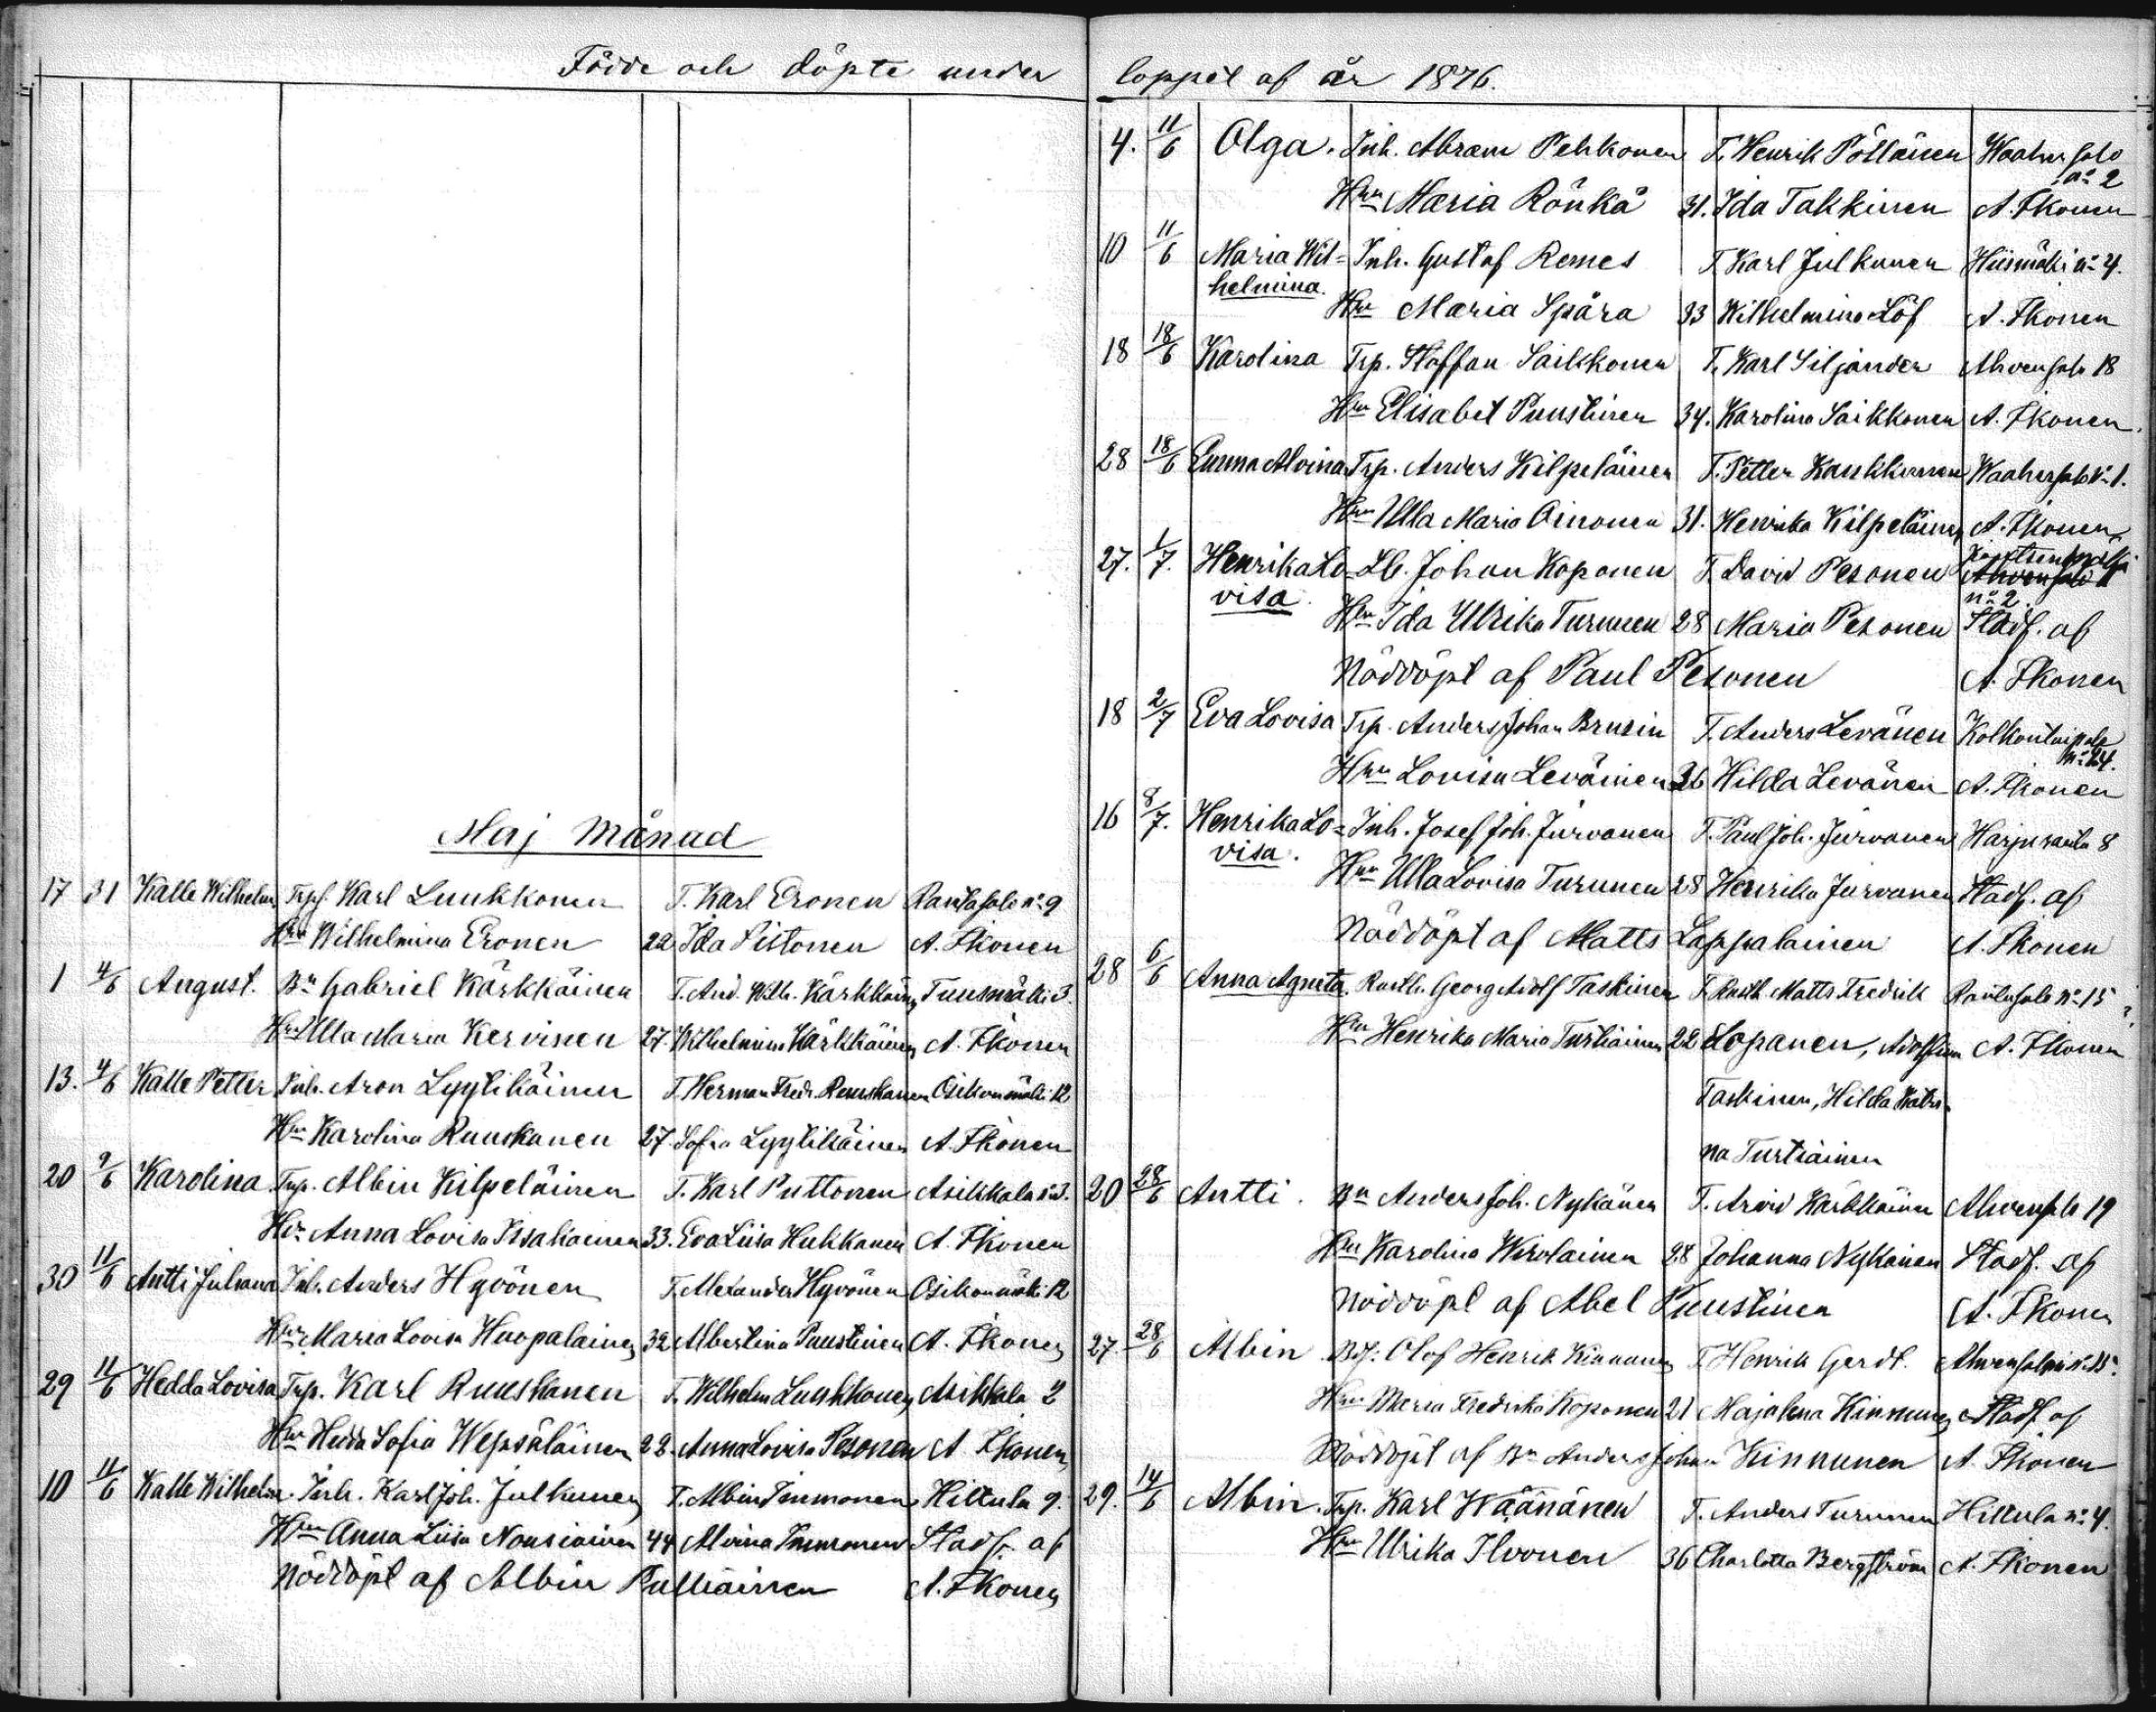 Födde och döpte under loppet af år 1876.
Maj månad
17 31 Kalle Wilhelm Trp. Karl Luukkonen T. Karl Eronen Rantasalo no 9
Hru Wilhelmina Eronen 22 Ida Piitonen A. Ikonen
1 4/6 August. Bn Gabriel Kärkkäinen T. And. Wilh. Kärkkäinen Tuusmäki 3
Hru Ulla Maria Kervinen 27. Wilhelmina Kärkkäinen A. Ikonen
13. 4/6 Kalle Petter Inh. Aron Lyytikäinen T. Herman Fredr. Ruuskanen Osikonmäki 12
Hru Karolina Ruuskanen 27. Sofia Lyytikäinen A. Ikonen
20 9/6 Karolina Trp. Albin Kilpeläinen T. Karl Puttonen Asikkala
Hru Anna Lovisa Issakainen 33. Eva Liisa Hukkanen A. Ikonen
30 11/6 Antti Juhana Inh. Anders Hyvönen T. Alexander Hyvönen Osikonmäki 12
Hru Maria Lovisa Huopalainen 32 Albertina Puustinen A. Ikonen
29 11/6 Hedda Lovisa Trp. Karl Ruuskanen T. Wilhelm Luukkonen Asikkala 2
Hru Hedda Sofia Wepsäläinen 22. Anna Lovisa Pesonen A. Ikonen
10 11/6 Kalle Wilhelm. Inh. Karl Joh. Julkunen T. Albin Immonen Hiltula 9.
Hru Anna Liisa Nousiainen 44 Alvina Immonen Stadf. af
Nöddöpt af Albin Pulliainen A. Ikonen
4. 11/6 Olga. Inh. Abram Pehkonen T. Henrik Pöllänen Waahersalo
no 2
Hru Maria Rönkä 31. Ida Takkinen A. Ikonen
10 11/6 Maria Wil= Inh. Gustaf Remes T. Karl Julkunen Hiismäki no 4.
helmina. Hru Maria Spåra 33 Wilhelmina Löf A. Ikonen
18 18/6 Karolina Trp. Staffan Saikkonen T. Karl Siljander Ahvensalo 18
Hru Elisabet Puustinen 34. Karolina Saikkonen A. Ikonen.
28 18/6 Emma Alvina Trp. Anders Kilpeläinen T. Petter Kaukkunen Waahersalo no 1.
Hru Ulla Maria Oinonen 31. Henrika Kilpeläinen A. Ikonen
27. 1/7. Henrika Lo= Lb. Johan Koponen T. David Pesonen
no 2.
visa. Hru Ida Ulrika Turunen 28 Maria Pesonen Stadf. af
Nöddöpt af Paul Pesonen A. Ikonen
18 2/7 Eva Lovisa Trp. Anders Johan Brusin T. Anders Levänen Kolkontaipale
no 24.
Hru Lovisa Leväinen 36 Hilda Levänen A. Ikonen
16 8/7. Henrika Lo= Inh. Josef Joh. Jurvanen T. Paul Joh. Jurvanen Harjurauta 8
visa. Hru Ulla Lovisa Turunen 28 Henrika Jurvanen Stadf. af
Nöddöpt af Matts Lappalainen A. Ikonen
28 6/6 Anna Agneta. Rusth. Georg Adolf Taskinen T. Rusth. Matts Fredrik Rantasalo no 15
Hru Henrika Maria Turtiainen 22 Lopanen, Adolfina A. Ikonen
Taskinen, Hilda Katri-
na Turtiainen
20 28/6 Antti. Bn Anders Joh. Nykänen T. Arvid Kärkkäinen Ahvensalo 19
Hru Karolina Wirolainen 28 Johanna Nykänen Stadf. af
Nöddöpt af Abel Puustinen A. Ikonen
27. 28/6 Albin Bdf. Olof Henrik Kinnunen T. Henrik Gerdt. Ahvensalo
Hru Maria Fredrika Koponen 21 Majalena Kinnunen Stadf. af
Nöddöpt af Bn Anders Johan Kinnunen A. Ikonen
29. 14/6 Albin. Trp. Karl Wäänänen T. Anders Turunen Hiltula no 4.
Hru Ulrika Ilvonen 36 Charlotta Bergström A. Ikonen